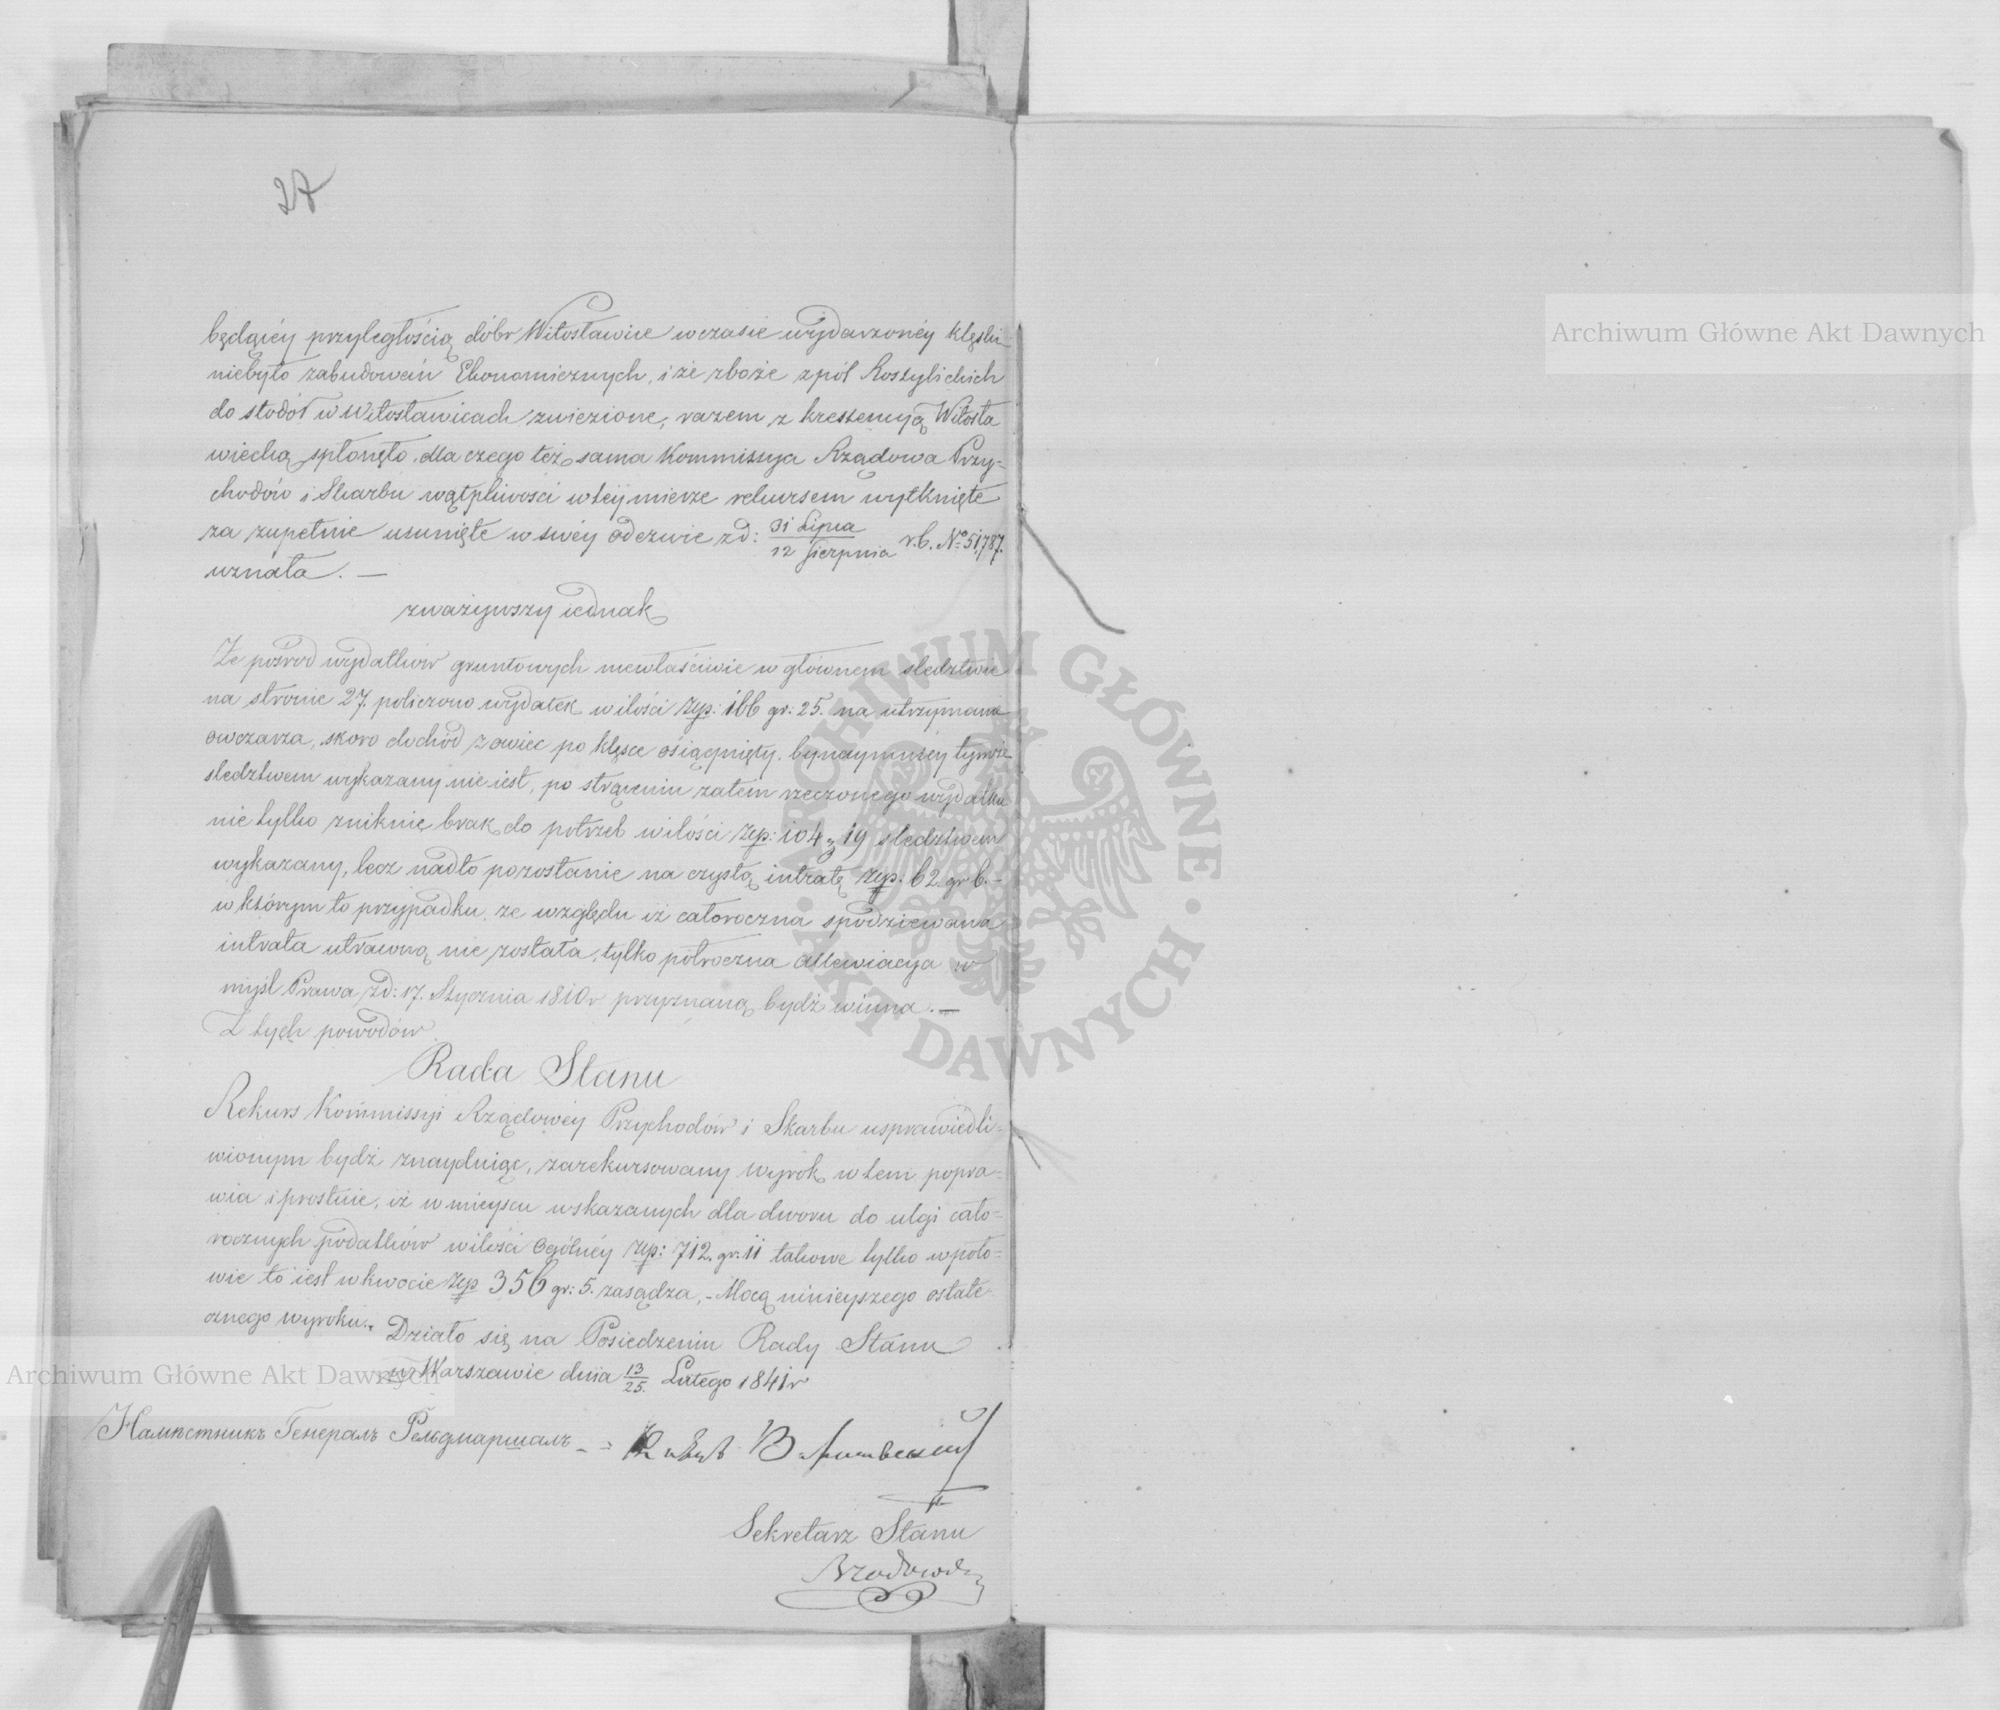 27
będącéy przyległością dóbr Witosławice wczasie wydarzonéy klęski
niebyło zabudowań Ekonomicznych, i że zboże z pól Roszylickich
do stodół w Witosławicach zwiezione, razem z krescencyją Witosła
wiecką spłonęło, dla czego też sama Kommissya Rządowa Przy-
chodów i Skarbu wątpliwości wtéy mierze rekursem wytknięte
za zupełnie usunięte w swéy odezwie z d: 31 Lipca / 12 Sierpnia r. b. No 51,787.
uznała. —
zważywszy iednak
Że pośrod wydatków gruntowych niewłaściwie w głównem sledztwie
na stronie 27. policzono wydatek w ilości złp: 166 gr: 25. na utrzymanie
owczarza, skoro dochód z owiec po klęsce osiągnięty, bynaymniéy tymże
sledztwem wykazany nie iest, po strąceniu zatem rzeczonego wydatku
nie tylko zniknie brak do potrzeb w ilości złp: 104 g 19 sledztwem
wykazany, lecz nadto pozostanie na czystą intratę złp. 62 gr 6. -
w którym to przypadku, ze względu iż całoroczna spodziewana
intrata utraconą nie została, tylko półroczna allewiacya w
myśl Prawa z d: 17. Stycznia 1810 r przyznaną bydź winna. —
Z tych powodów
Rada Stanu
Rekurs Kommissyi Rządowéy Przychodów i Skarbu usprawiedli-
wionym bydź znayduiąc, zarekursowany wyrok w tem popra-
wia i prostuie, iż w mieyscu wskazanych dla dworu do ulgi cało-
rocznych podatków w ilości ogólnéy złp: 712. gr: 11 takowe tylko w poło-
wie to iest w kwocie złp 356 gr: 5. zasądza, - Mocą ninieyszego ostate-
cznego wyroku. Działo się na Posiedzeniu Rady Stanu
w Warszawie dnia 13/25. Lutego 1841 r
Намѣстникъ Генералъ Фельдмаршалъ - -
Sekretarz Stanu
Archiwum Główne Akt Dawnych
Archiwum Główne Akt Dawnych
ARCHIWUM GŁÓWNE · AKT DAWNYCH ·